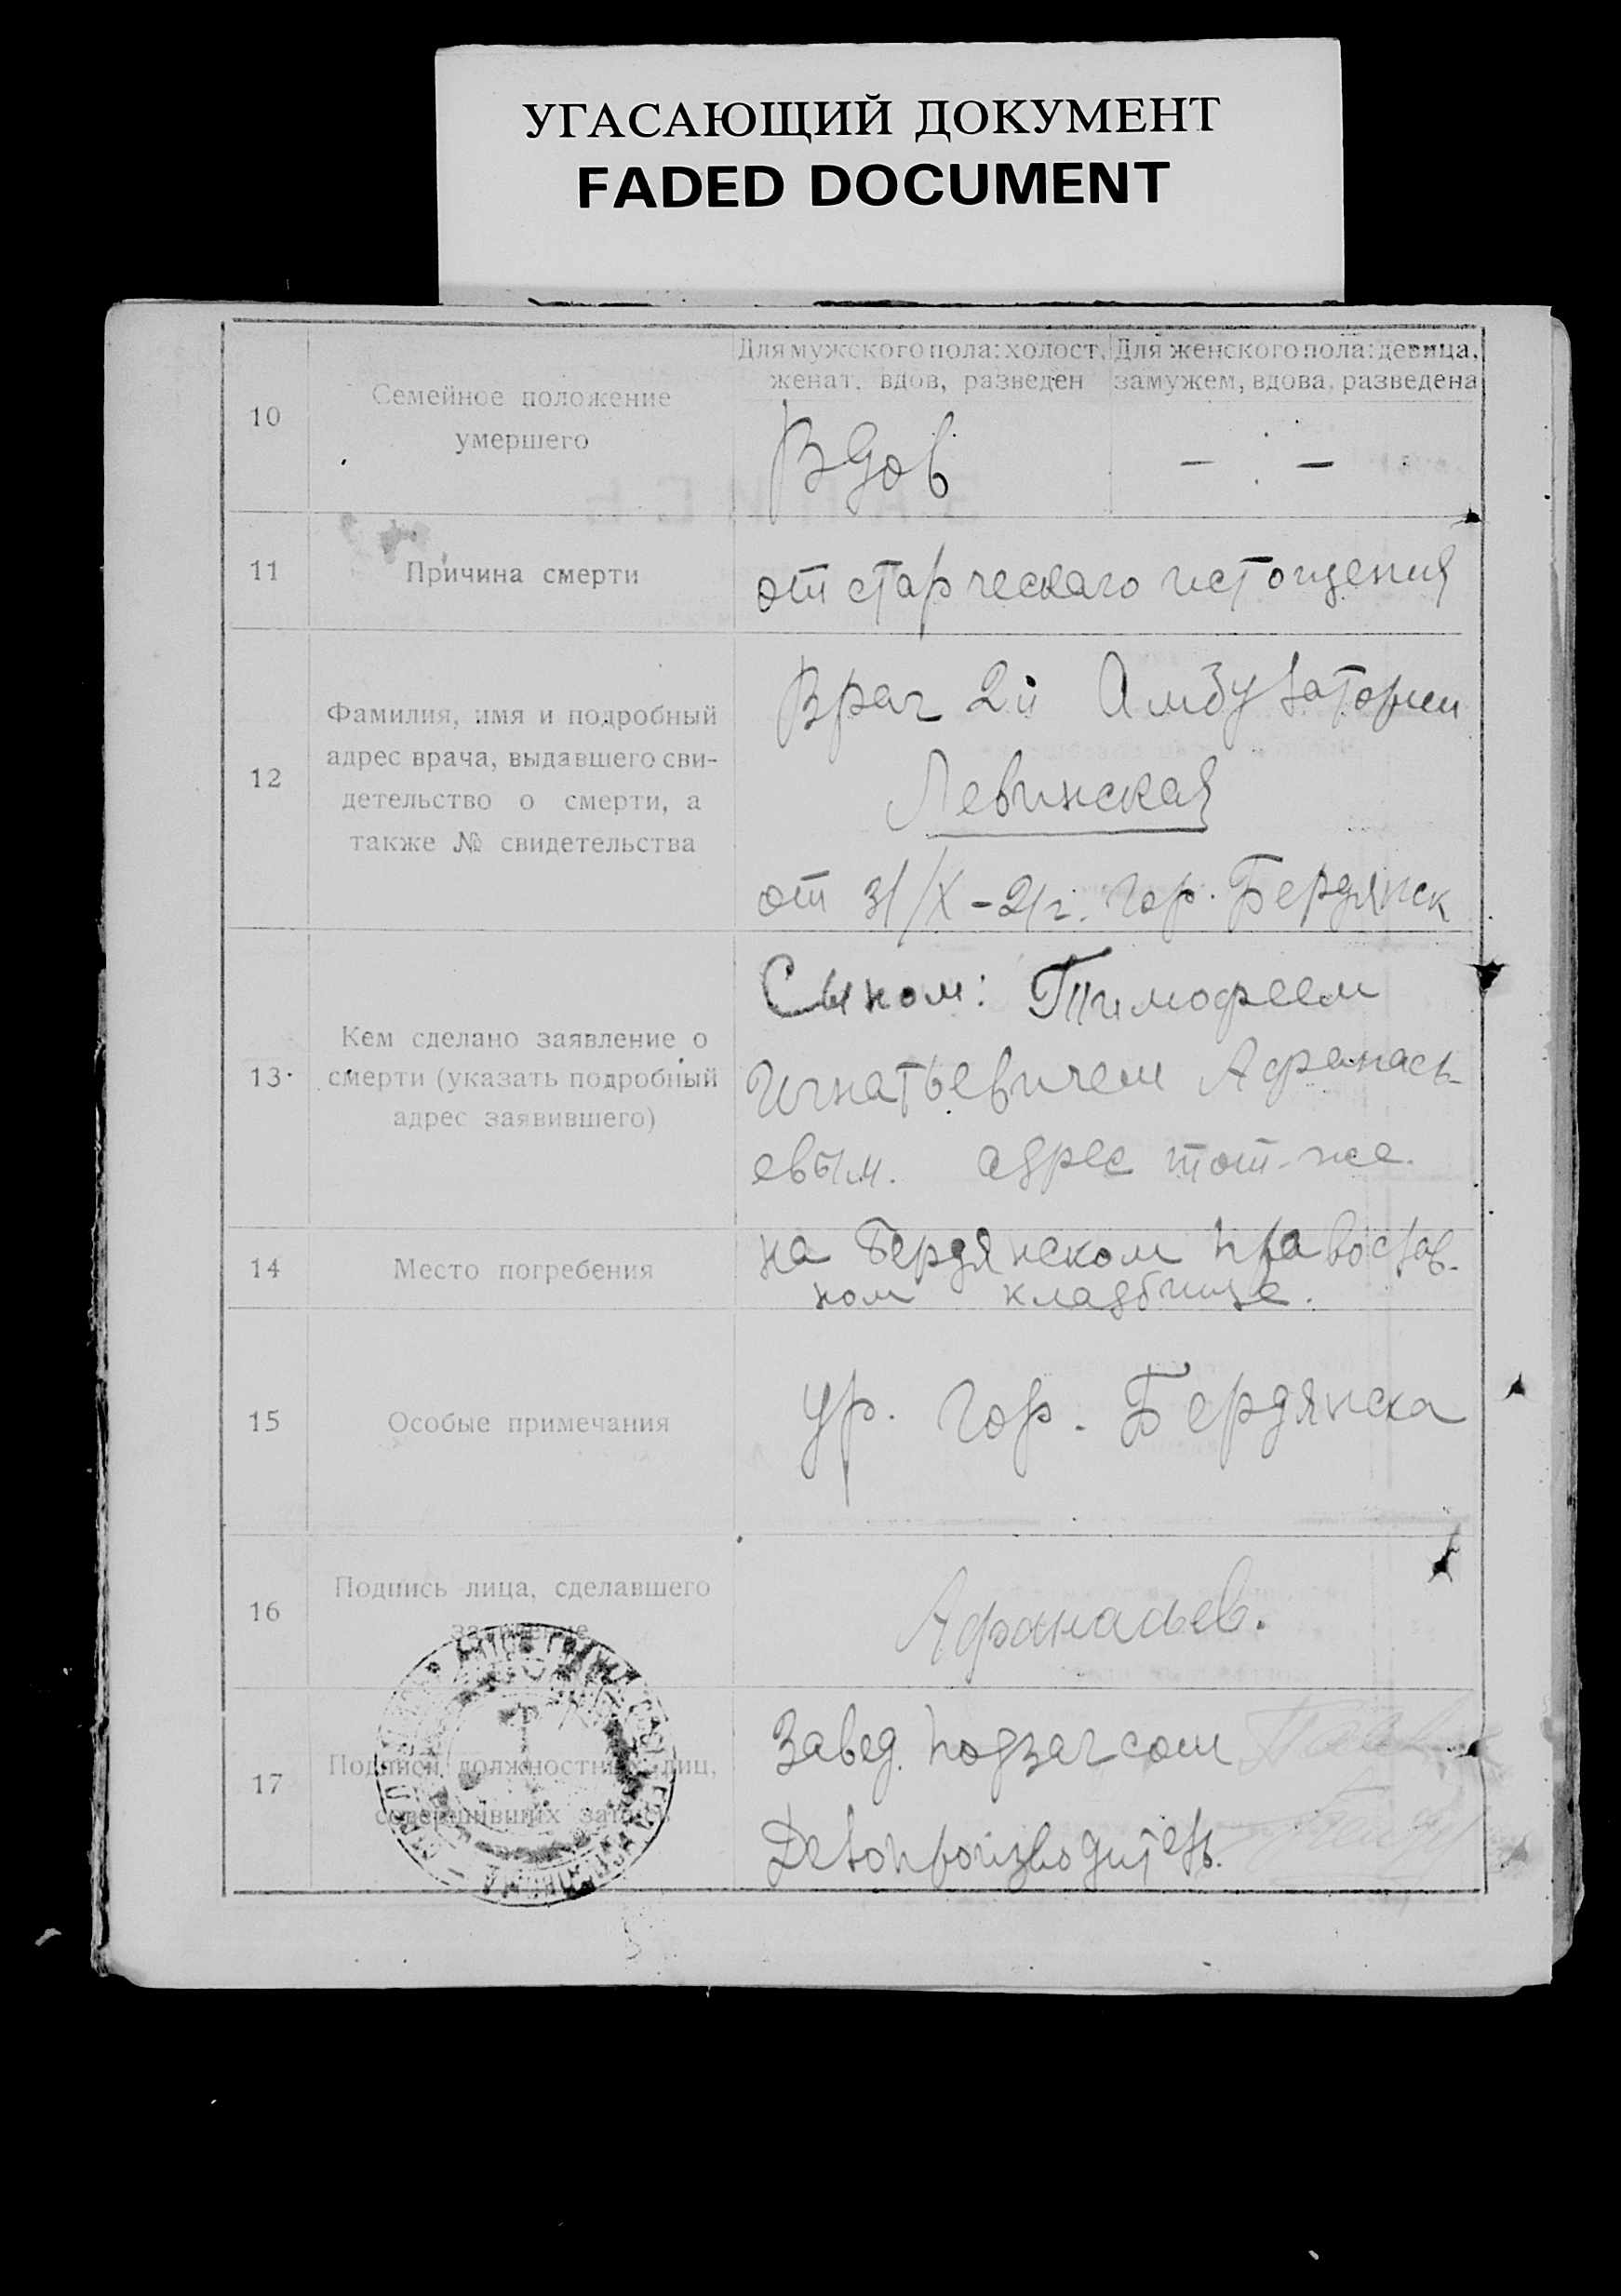 УГАСАЮЩИЙ ДОКУМЕНТ
FADED DOCUMENT
10
Семейное положение
умершего
Для мужского пола: холост,
женат, вдов, разведен
Для женского пола: девица,
замужем, вдова, разведена
Вдов
— —
11
Причина смерти
от старческаго истощения
12
Фамилия, имя и подробный
адрес врача, выдавшего сви-
детельство о смерти, а
также № свидетельства
Врач 2й Амбулатории
Левинская
от 31/X - 21 г. гор. Бердянск
13
Кем сделано заявление о
смерти (указать подробный
адрес заявившего)
Сыном: Тимофеем
Игнатьевичем Афанась-
евым. адрес тот-же.
14
Место погребения
на Бердянском православ-
ном кладбище.
15
Особые примечания
ур. гор. Бердянска
16
Подпись лица, сделавшего
заявление
Афанасьев.
17
Подписи должностных лиц,
совершивших запись
Завед. подзагсом
Делопроизводитель.